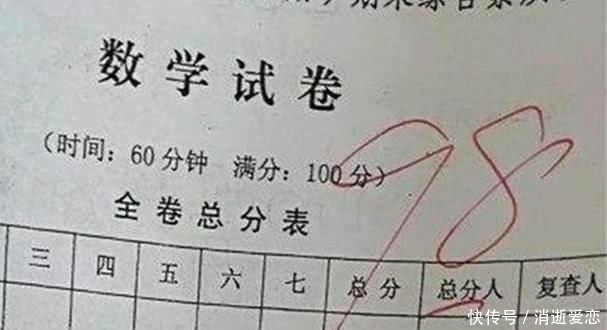 数学试卷
(时间：60分钟 满分：100分)
98
全卷总分表
三 四 五 六 七 总分 总分人 复查人
快传号／消逝爱恋